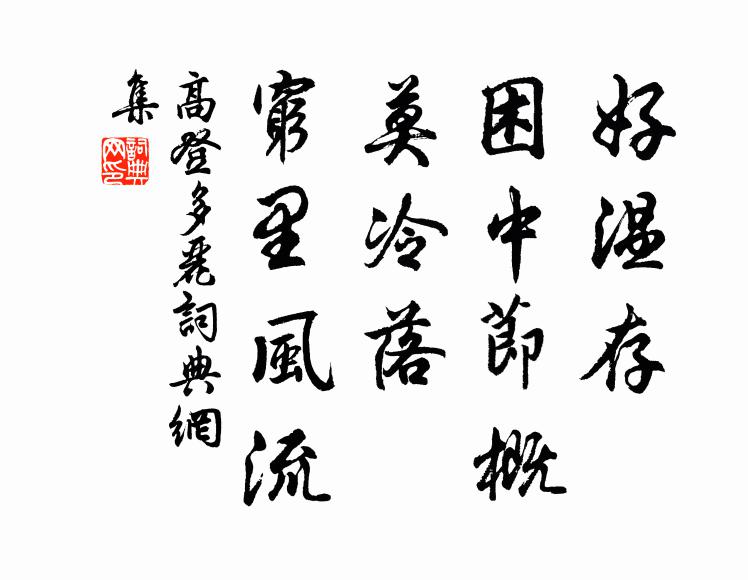 好溫存
困中節概
莫冷落
窮里風流
高登多麗詞典網
集
詞典
网印